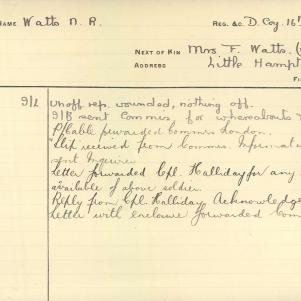 NAME Watts N. R. REG. &C. D. Coy. 16
NEXT OF KIN Mrs F. Watts. (
ADDRESS Little Hampt
9/1 Unoff rep. wounded, nothing off.
9/B sent Commrs. for whereabouts &
P/Cable forwarded Commrs London.
Slip received from Commrs. Informat
sent Inquirer
Letter forwarded Cpl. Halliday for any
available of above soldier.
Reply from Cpl. Halliday. Acknowledge
Letter with enclosure forwarded Com